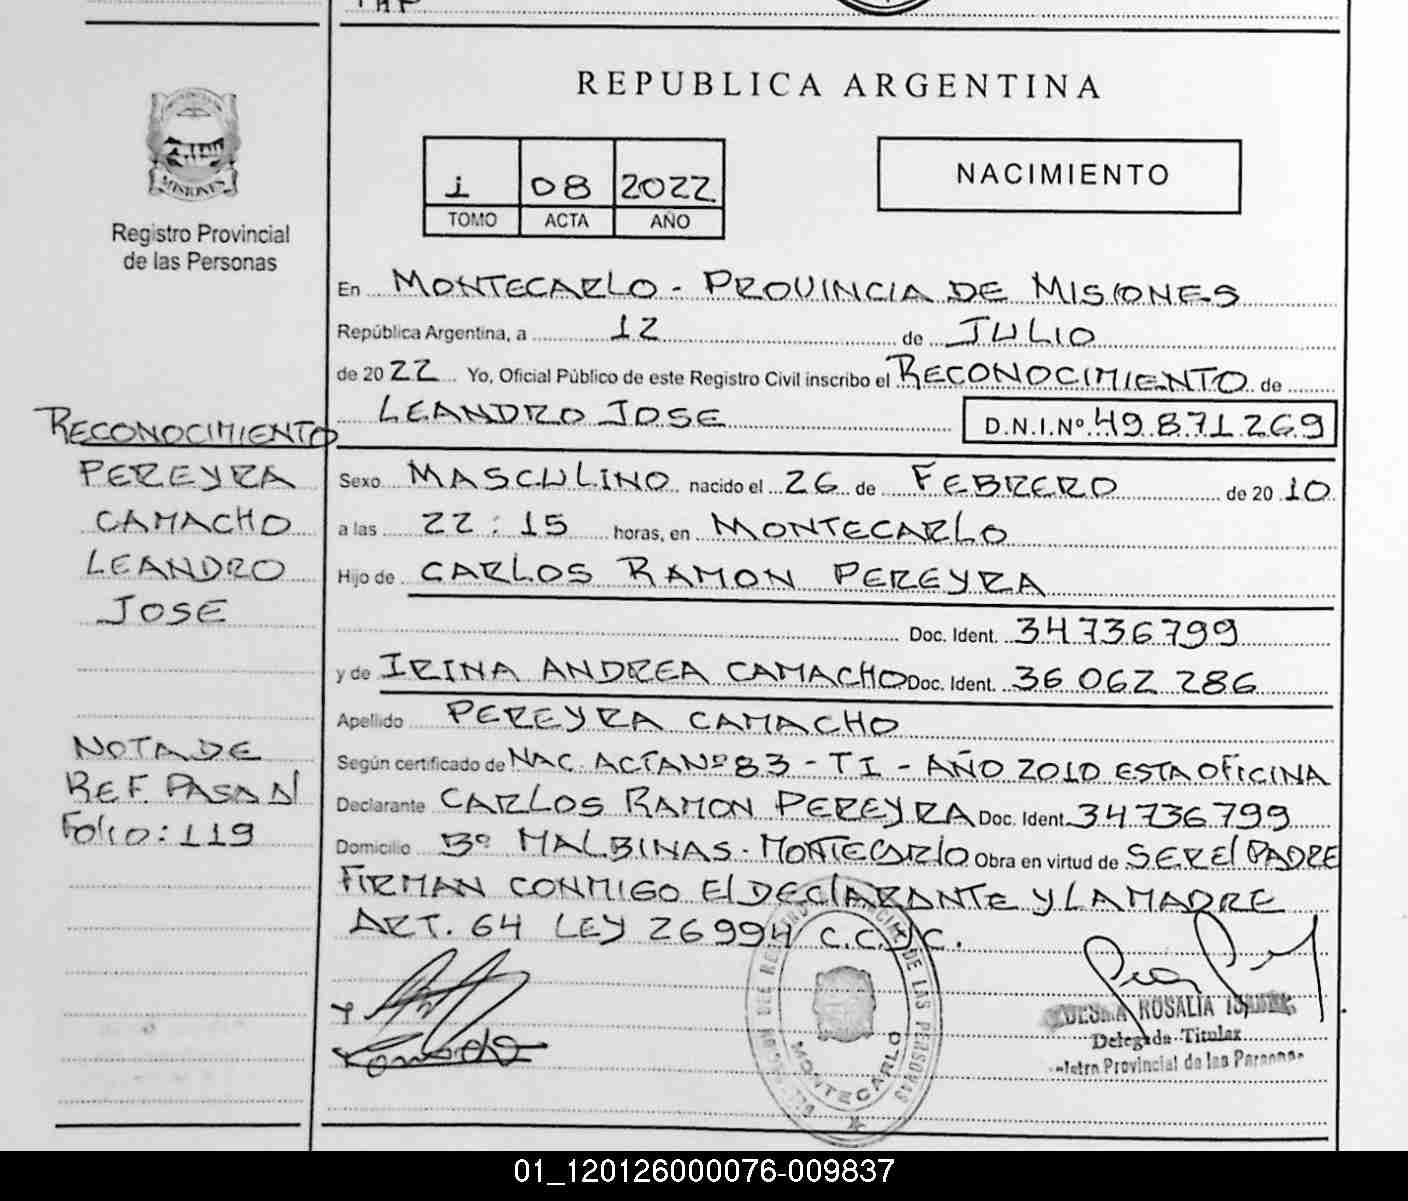 REPUBLICA ARGENTINA
1 08 2022
TOMO ACTA AÑO
NACIMIENTO
MISIONES
Registro Provincial
de las Personas
En MONTECARLO - PROVINCIA DE MISIONES
República Argentina, a 12 de JULIO
de 2022 Yo, Oficial Público de este Registro Civil inscribo el RECONOCIMIENTO de
LEANDRO JOSE D.N.I.Nº 49.871.269
RECONOCIMIENTO
PEREYRA
CAMACHO
LEANDRO
JOSE
NOTA DE
REF. PASA AL
Folio: 119
Sexo MASCULINO nacido el 26 de FEBRERO de 2010
a las 22:15 horas, en MONTECARLO
Hijo de CARLOS RAMON PEREYRA
Doc. Ident. 34736799
y de IRINA ANDREA CAMACHO Doc. Ident. 36 062 286
Apellido PEREYRA CAMACHO
Según certificado de NAC. ACTA Nº 83 - T I - AÑO 2010 ESTA OFICINA
Declarante CARLOS RAMON PEREYRA Doc. Ident. 34736799
Domicilio Bº MALBINAS - MONTECARLO Obra en virtud de SER El PADRE
FIRMAN CONMIGO El DEClARANTE Y LA MADRE
ART. 64 LEY 26994 C.C.C.
DE LAS PERSONAS
MONTECARLO
ROSALIA
Delegada Titular
Provincial de las Personas
01_120126000076-009837